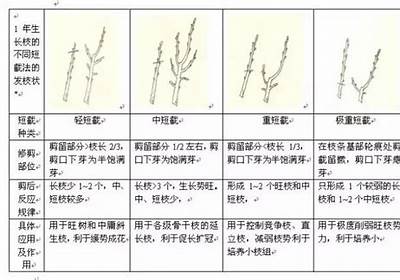 1 年生
长枝的
不同短
截法的
发枝状
*
短截
种类
轻短截
中短截
重短截
极重短截
修剪
部位
剪留部分>枝长 2/3，
剪口下芽为半饱满
芽
剪留部分 1/2 左右，剪
口下芽为饱满芽
剪留部分<枝长 1/3，
剪口下芽为半饱满
芽
在枝条基部轮痕处剪
截留橛，剪口下芽瘪
剪后
反应
规律
长枝少 1~2 个，中、
短枝较多
长枝>3 个，生长势旺。
中、短枝少，
形成 1~2 个旺枝和中
短枝，
只形成 1 个较弱的长
枝和 1~2 个中短枝
具体
应用
及作
用
用于旺树和中庸斜
生枝，利于缓势成花
用于各级骨干枝的延
长枝，利于促长扩冠
用于控制竞争枝、直
立枝，减弱枝势利于
培养小枝组
用于极度削弱旺枝势
力，利于培养小